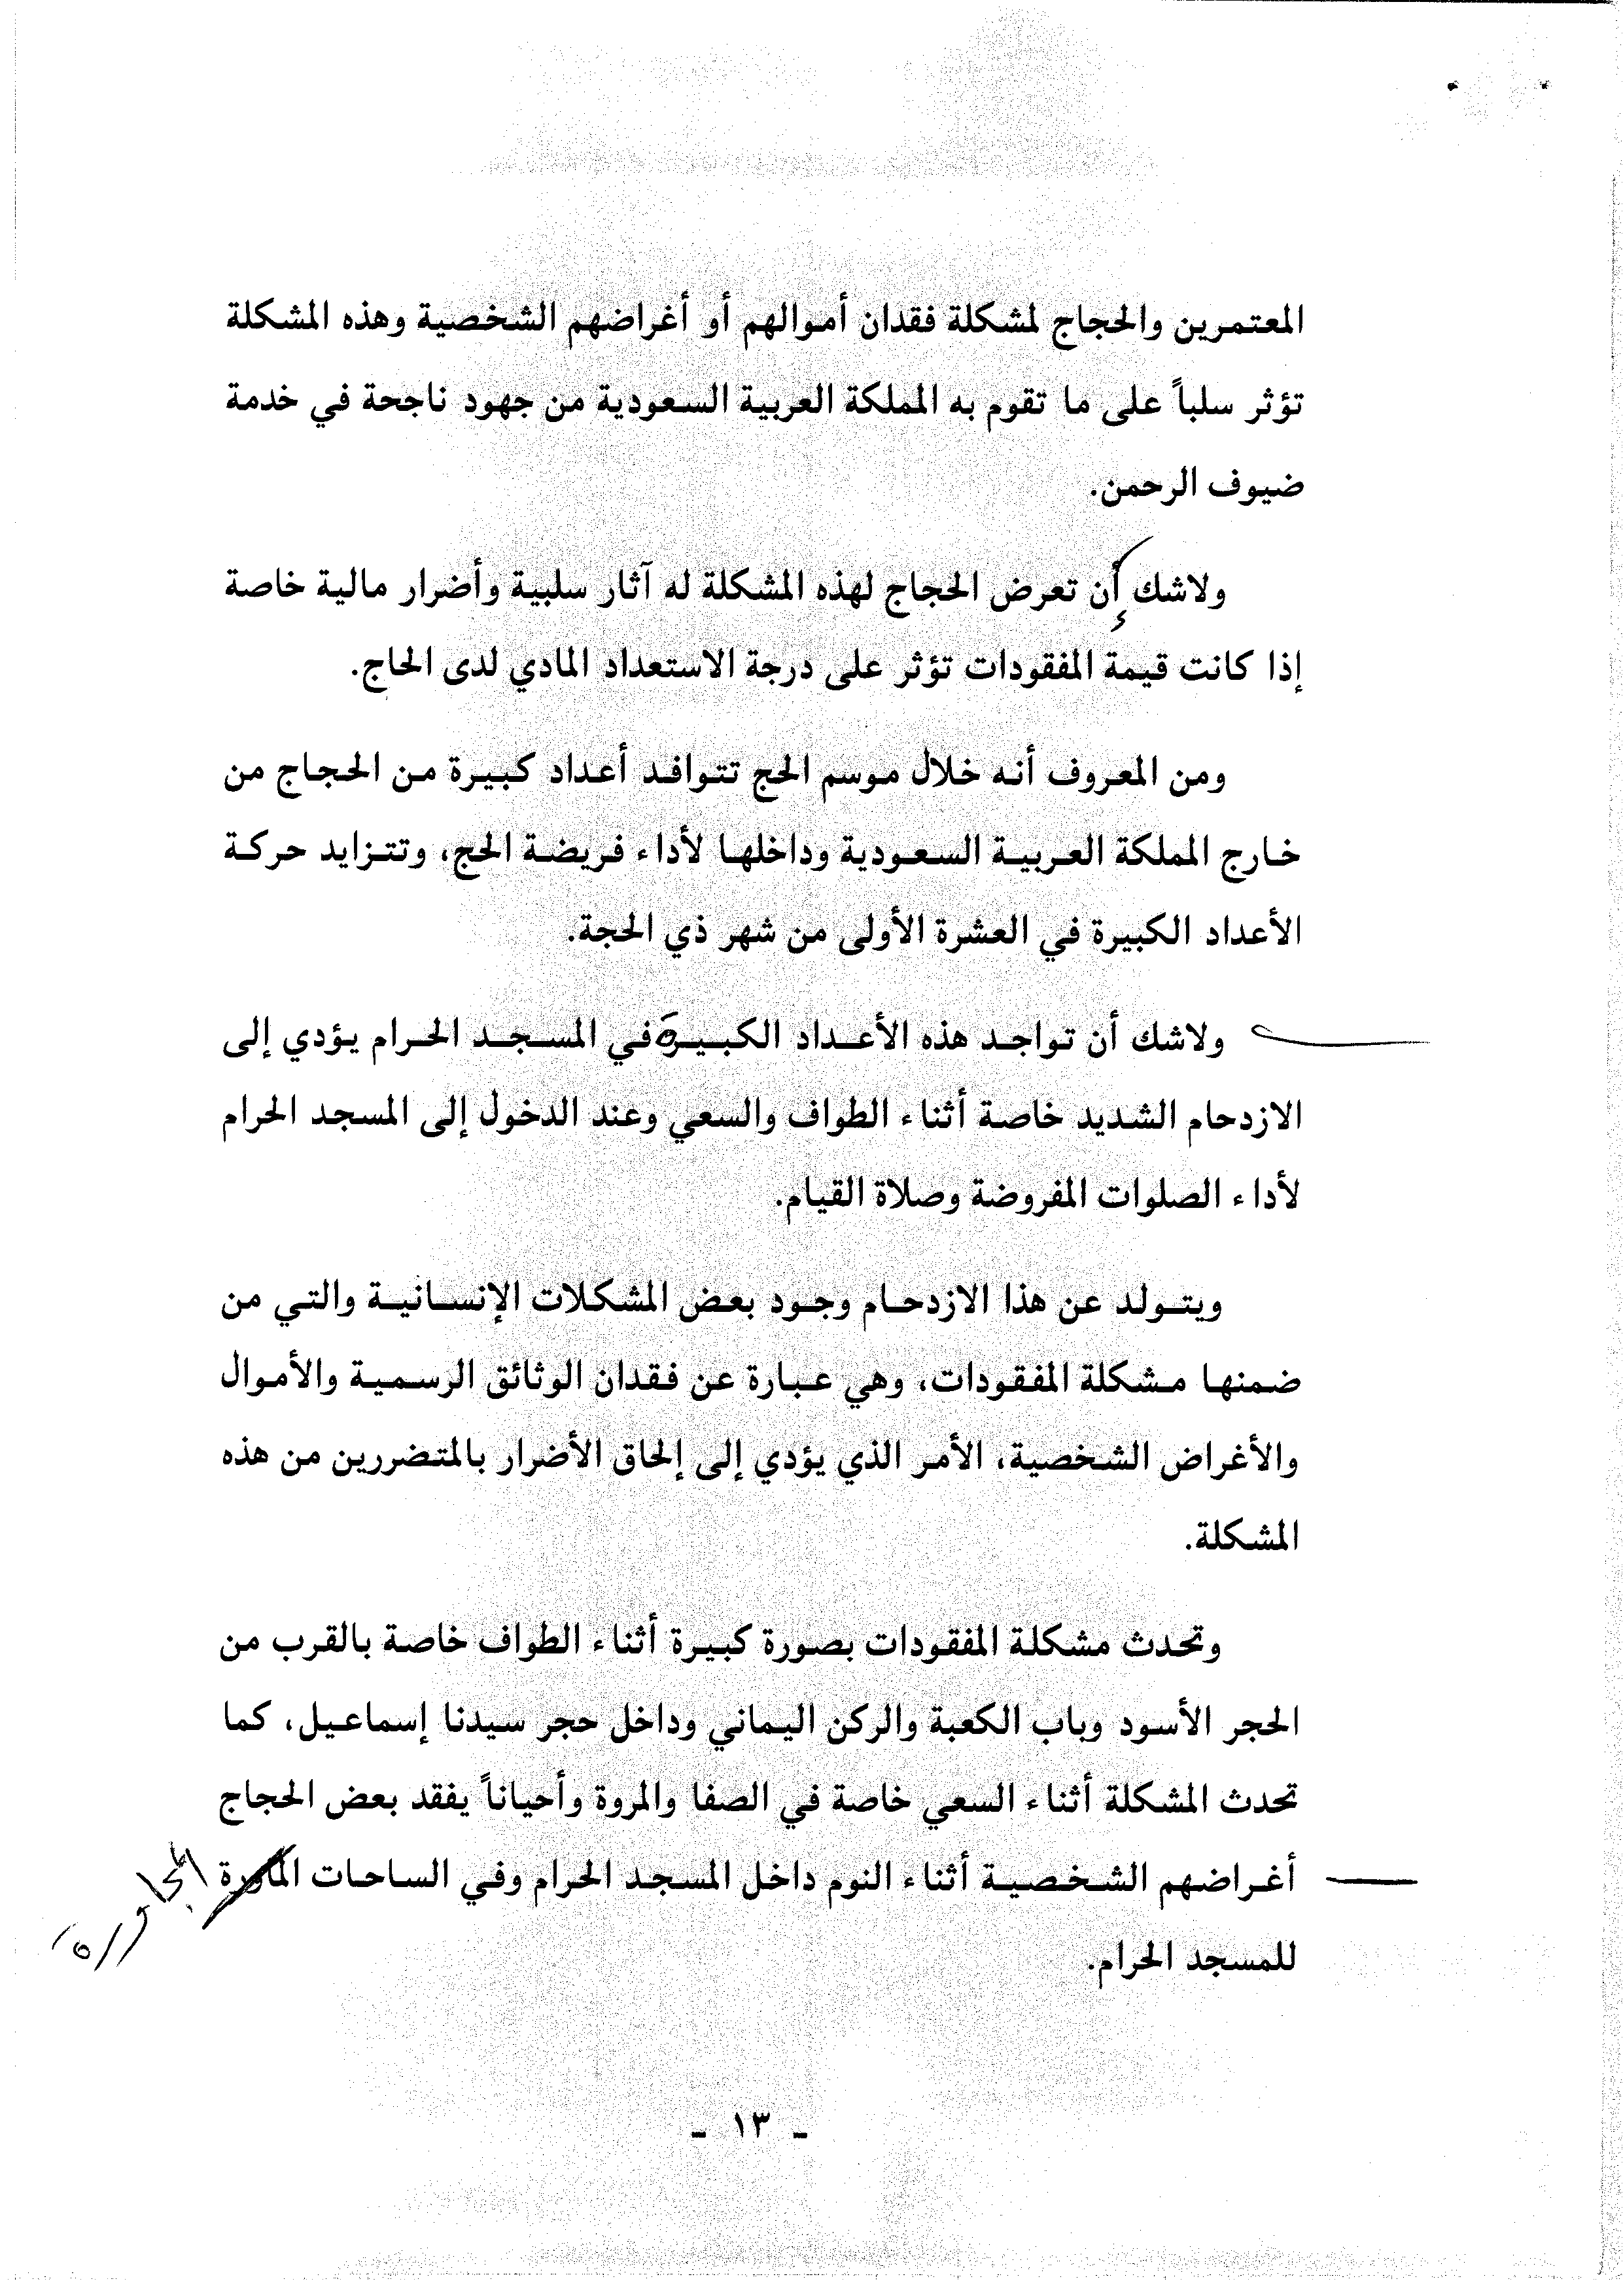 المعتمرين والحجاج لمشكلة فقدان أموالهم أو أغراضهم الشخصية وهذه المشكلة
تؤثر سلباً على ما تقوم به المملكة العربية السعودية من جهود ناجحة في خدمة
ضيوف الرحمن.
ولاشك أن تعرض الحجاج لهذه المشكلة له آثار سلبية وأضرار مالية خاصة
إذا كانت قيمة المفقودات تؤثر على درجة الاستعداد المادي لدى الحاج.
ومن المعروف أنه خلال موسم الحج تتوافد أعداد كبيرة من الحجاج من
خارج المملكة العربية السعودية وداخلها لأداء فريضة الحج، وتتزايد حركة
الأعداد الكبيرة في العشرة الأولى من شهر ذي الحجة.
ولاشك أن تواجد هذه الأعداد الكبيرة في المسجد الحرام يؤدي إلى
الازدحام الشديد خاصة أثناء الطواف والسعي وعند الدخول إلى المسجد الحرام
لأداء الصلوات المفروضة وصلاة القيام.
ويتولد عن هذا الازدحام وجود بعض المشكلات الإنسانية والتي من
ضمنها مشكلة المفقودات، وهي عبارة عن فقدان الوثائق الرسمية والأموال
والأغراض الشخصية، الأمر الذي يؤدي إلى إلحاق الأضرار بالمتضررين من هذه
المشكلة.
وتحدث مشكلة المفقودات بصورة كبيرة أثناء الطواف خاصة بالقرب من
الحجر الأسود وباب الكعبة والركن اليماني وداخل حجر سيدنا إسماعيل، كما
تحدث المشكلة أثناء السعي خاصة في الصفا والمروة وأحياناً يفقد بعض الحجاج
أغراضهم الشخصية أثناء النوم داخل المسجد الحرام وفي الساحات
المجاورة
للمسجد الحرام.
ـ ١٣ ـ